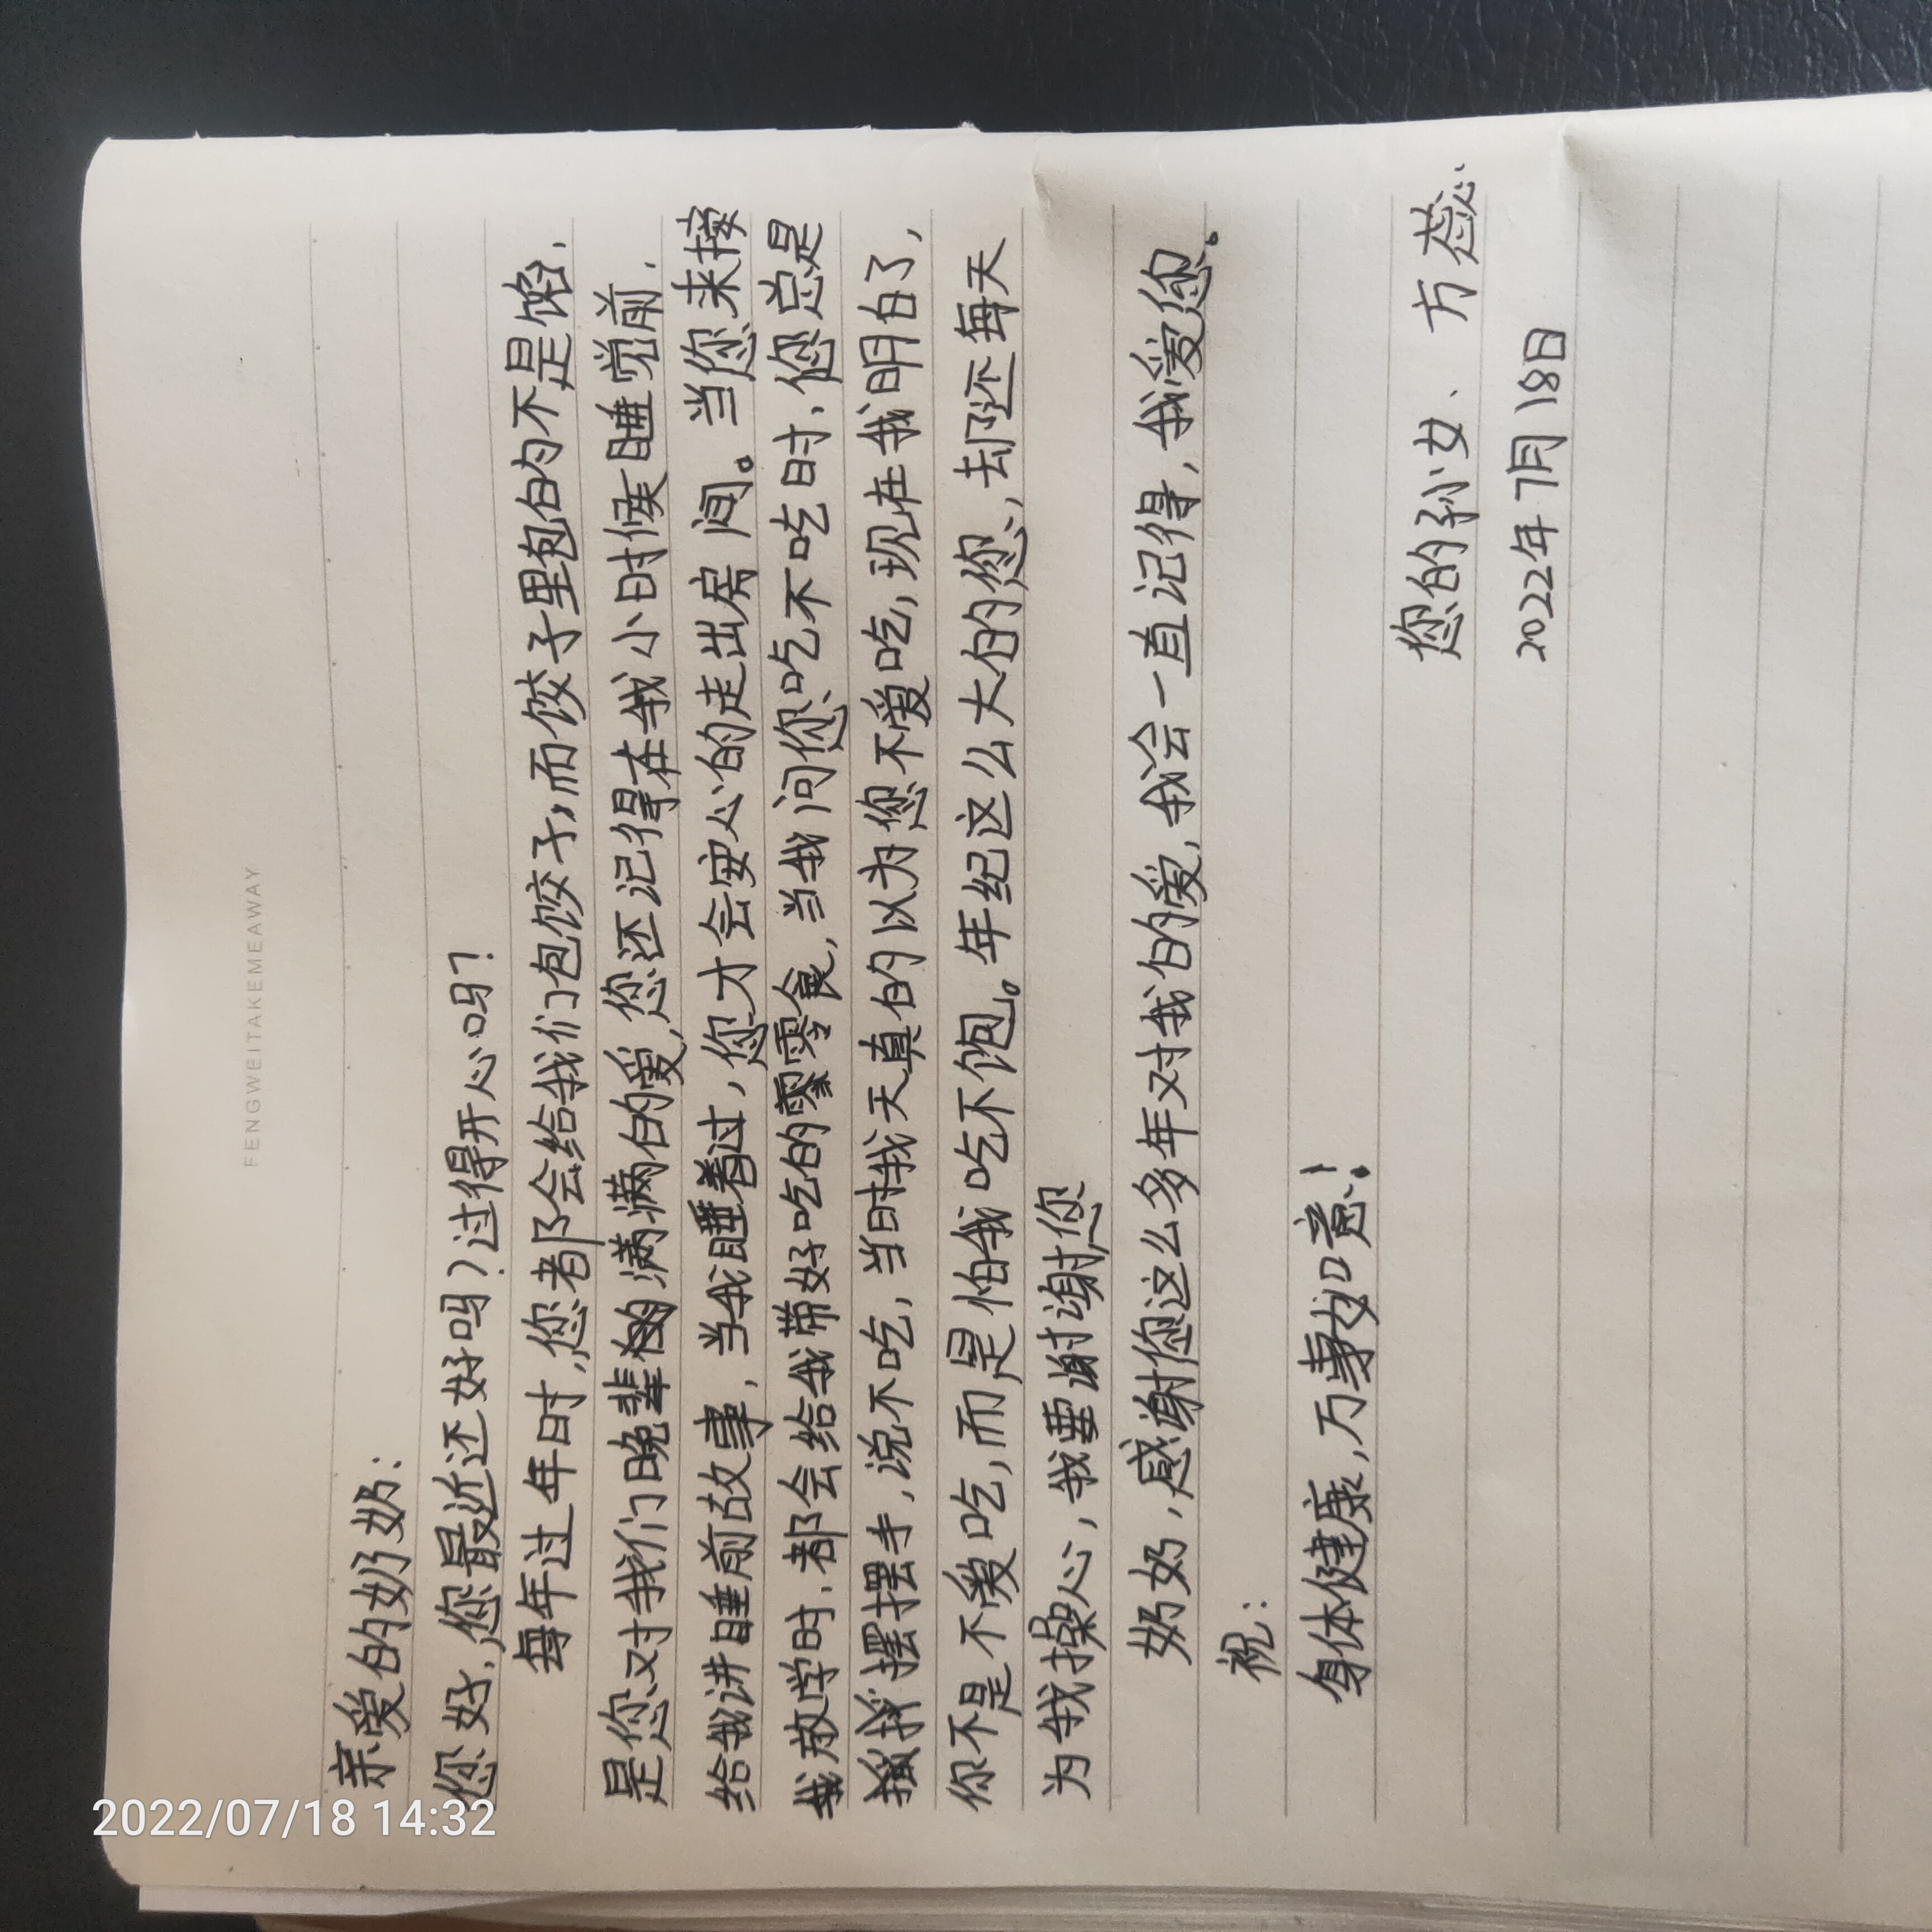 FENGWEITAKEMEAWAY
亲爱的奶奶：
您好，您最近还好吗？过得开心吗？
每年过年时，您都会给我们包饺子，而饺子里包的不是馅，
是您对我们晚辈满满的爱，您还记得在我小时候睡觉前，
给我讲睡前故事，当我睡着过，您才会安心的走出房间。当您来接
我放学时，都会给我带好吃的零食，当我问您吃不吃时，您总是
摆摆手，说不吃，当时我天真的以为您不爱吃，现在我明白了，
你不是不爱吃，而是怕我吃不饱。年纪这么大的您，却还每天
为我操心，我要谢谢您
奶奶，感谢您这么多年对我的爱，我会一直记得，我爱您。
祝：
身体健康，万事如意！
您的孙女、方蕊
2022年7月18日
2022/07/18 14:32